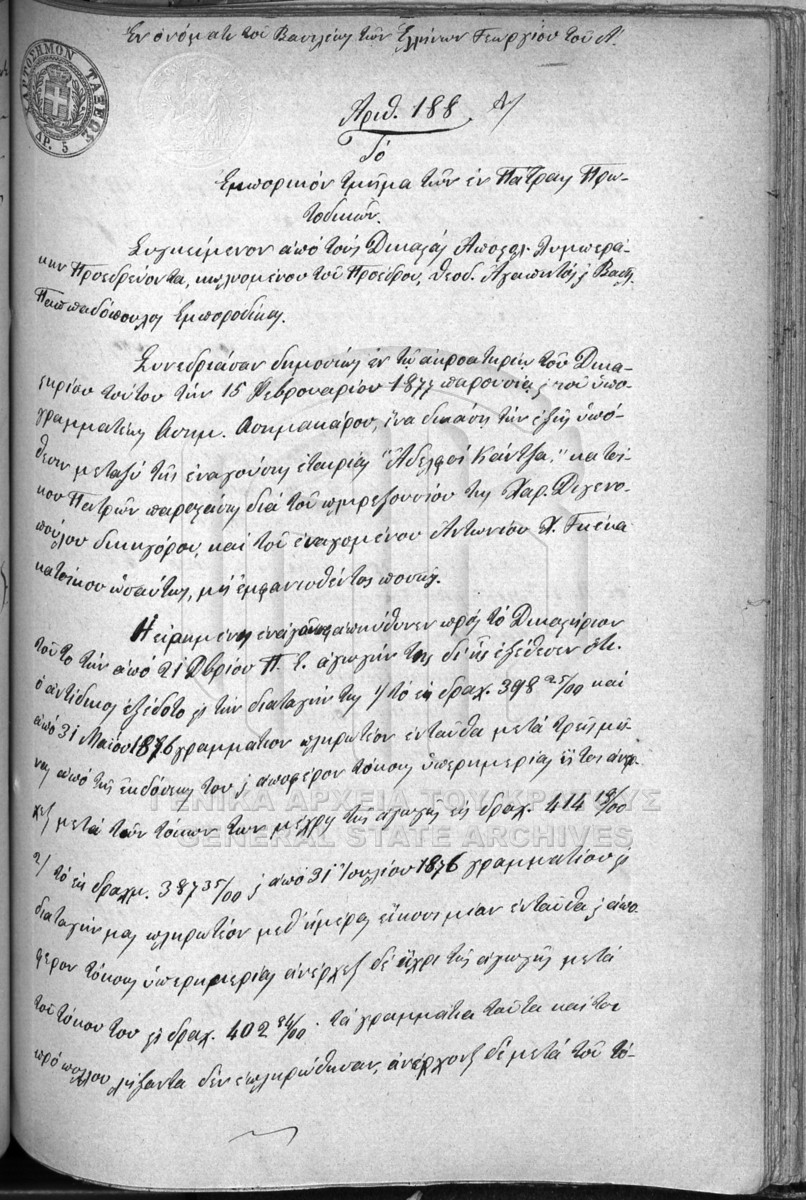 Ἐν ὀνόματι τοῦ Βασιλέως τῶν Ἑλλήνων Γεωργίου τοῦ Α΄.
ΧΑΡΤΟΣΗΜΟΝ ΤΑΞΕΩΣ
ΔΡ. 5
Ἀριθ. 188.
Τό
Ἐμπορικόν τμῆμα τῶν ἐν Πάτραις Πρω-
τοδικῶν.
Συγκείμενον ἀπό τούς Δικαστάς Λυμπερά-
κην Προεδρεύοντα, κωλυομένου τοῦ Προέδρου, Θεοδ. Ἀγαπητόν καί Βασίλ.
Παππαδόπουλον Ἐμποροδίκας.
Συνεδριάσαν δημοσίως ἐν τῷ ἀκροατηρίῳ τοῦ Δικα-
στηρίου τούτου τήν 15 Φεβρουαρίου 1877 παρουσίᾳ καί τοῦ ὑπο-
γραμματέως Ἀσημ. Ἀσημακάρου, ἵνα δικάσῃ τήν ἑξῆς ὑπό-
θεσιν μεταξύ τῆς ἐναγούσης ἑταιρίας "Ἀδελφοί Κάντζα," κατοί-
κου Πατρῶν παραστάσης διά τοῦ πληρεξουσίου της Χαρ. Διγενο-
πούλου δικηγόρου, καί τοῦ ἐναγομένου Ἀντωνίου Χ. Γκέκα
κατοίκου ὡσαύτως, μή ἐμφανισθέντος ποσῶς.
Ἡ εἰρημένη ἐνάγουσα ἀπηύθυνεν πρός τό Δικαστήριον
τοῦτο τήν ἀπό 21 Δβρίου π. ἔ. ἀγωγήν της δι' ἧς ἐξέθεσεν ὅτι
ὁ ἀντίδικος ἐξέδοτο εἰς τήν διαταγήν της 1/ τό ἐκ δραχ. 398 25/00 καί
ἀπό 31 Μαΐου 1876 γραμμάτιον πληρωτέον ἐνταῦθα μετά τρεῖς μῆ-
νας ἀπό τῆς ἐκδόσεώς του καί ἀποφέρον τόκους ὑπερημερίας
μετά τῶν τόκων των μέχρι τῆς ἀγωγῆς εἰς δραχ. 414
ΓΕΝΙΚΑ ΑΡΧΕΙΑ ΤΟΥ ΚΡΑΤΟΥΣ
GENERAL STATE ARCHIVES
2/ τό ἐκ δραχμ. 387 35/00 καί ἀπό 31 Ἰουλίου 1876 γραμμάτιον εἰς
διαταγήν μας πληρωτέον μεθ' ἡμέρας εἴκοσι μίαν ἐνταῦθα καί ἀπο-
φέρον τόκους ὑπερημερίας ἀνέρχεται δέ μέχρι τῆς ἀγωγῆς μετά
τοῦ τόκου του εἰς δραχ. 402 · τά γραμμάτια ταῦτα καί τοι
πρό πολλοῦ λήξαντα δέν ἐπληρώθησαν, ἀνέρχονται δέ μετά τοῦ τό-